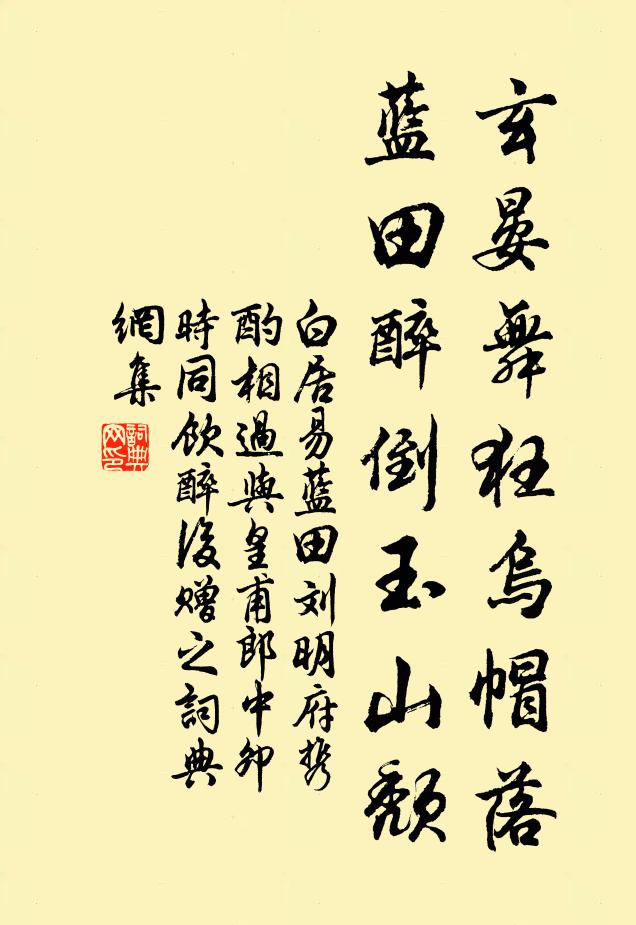 玄晏舞狂烏帽落
藍田醉倒玉山頹
白居易藍田刘明府携
酌相過與皇甫郎中卯
時同飲醉後赠之詞典
網集
詞典
网印